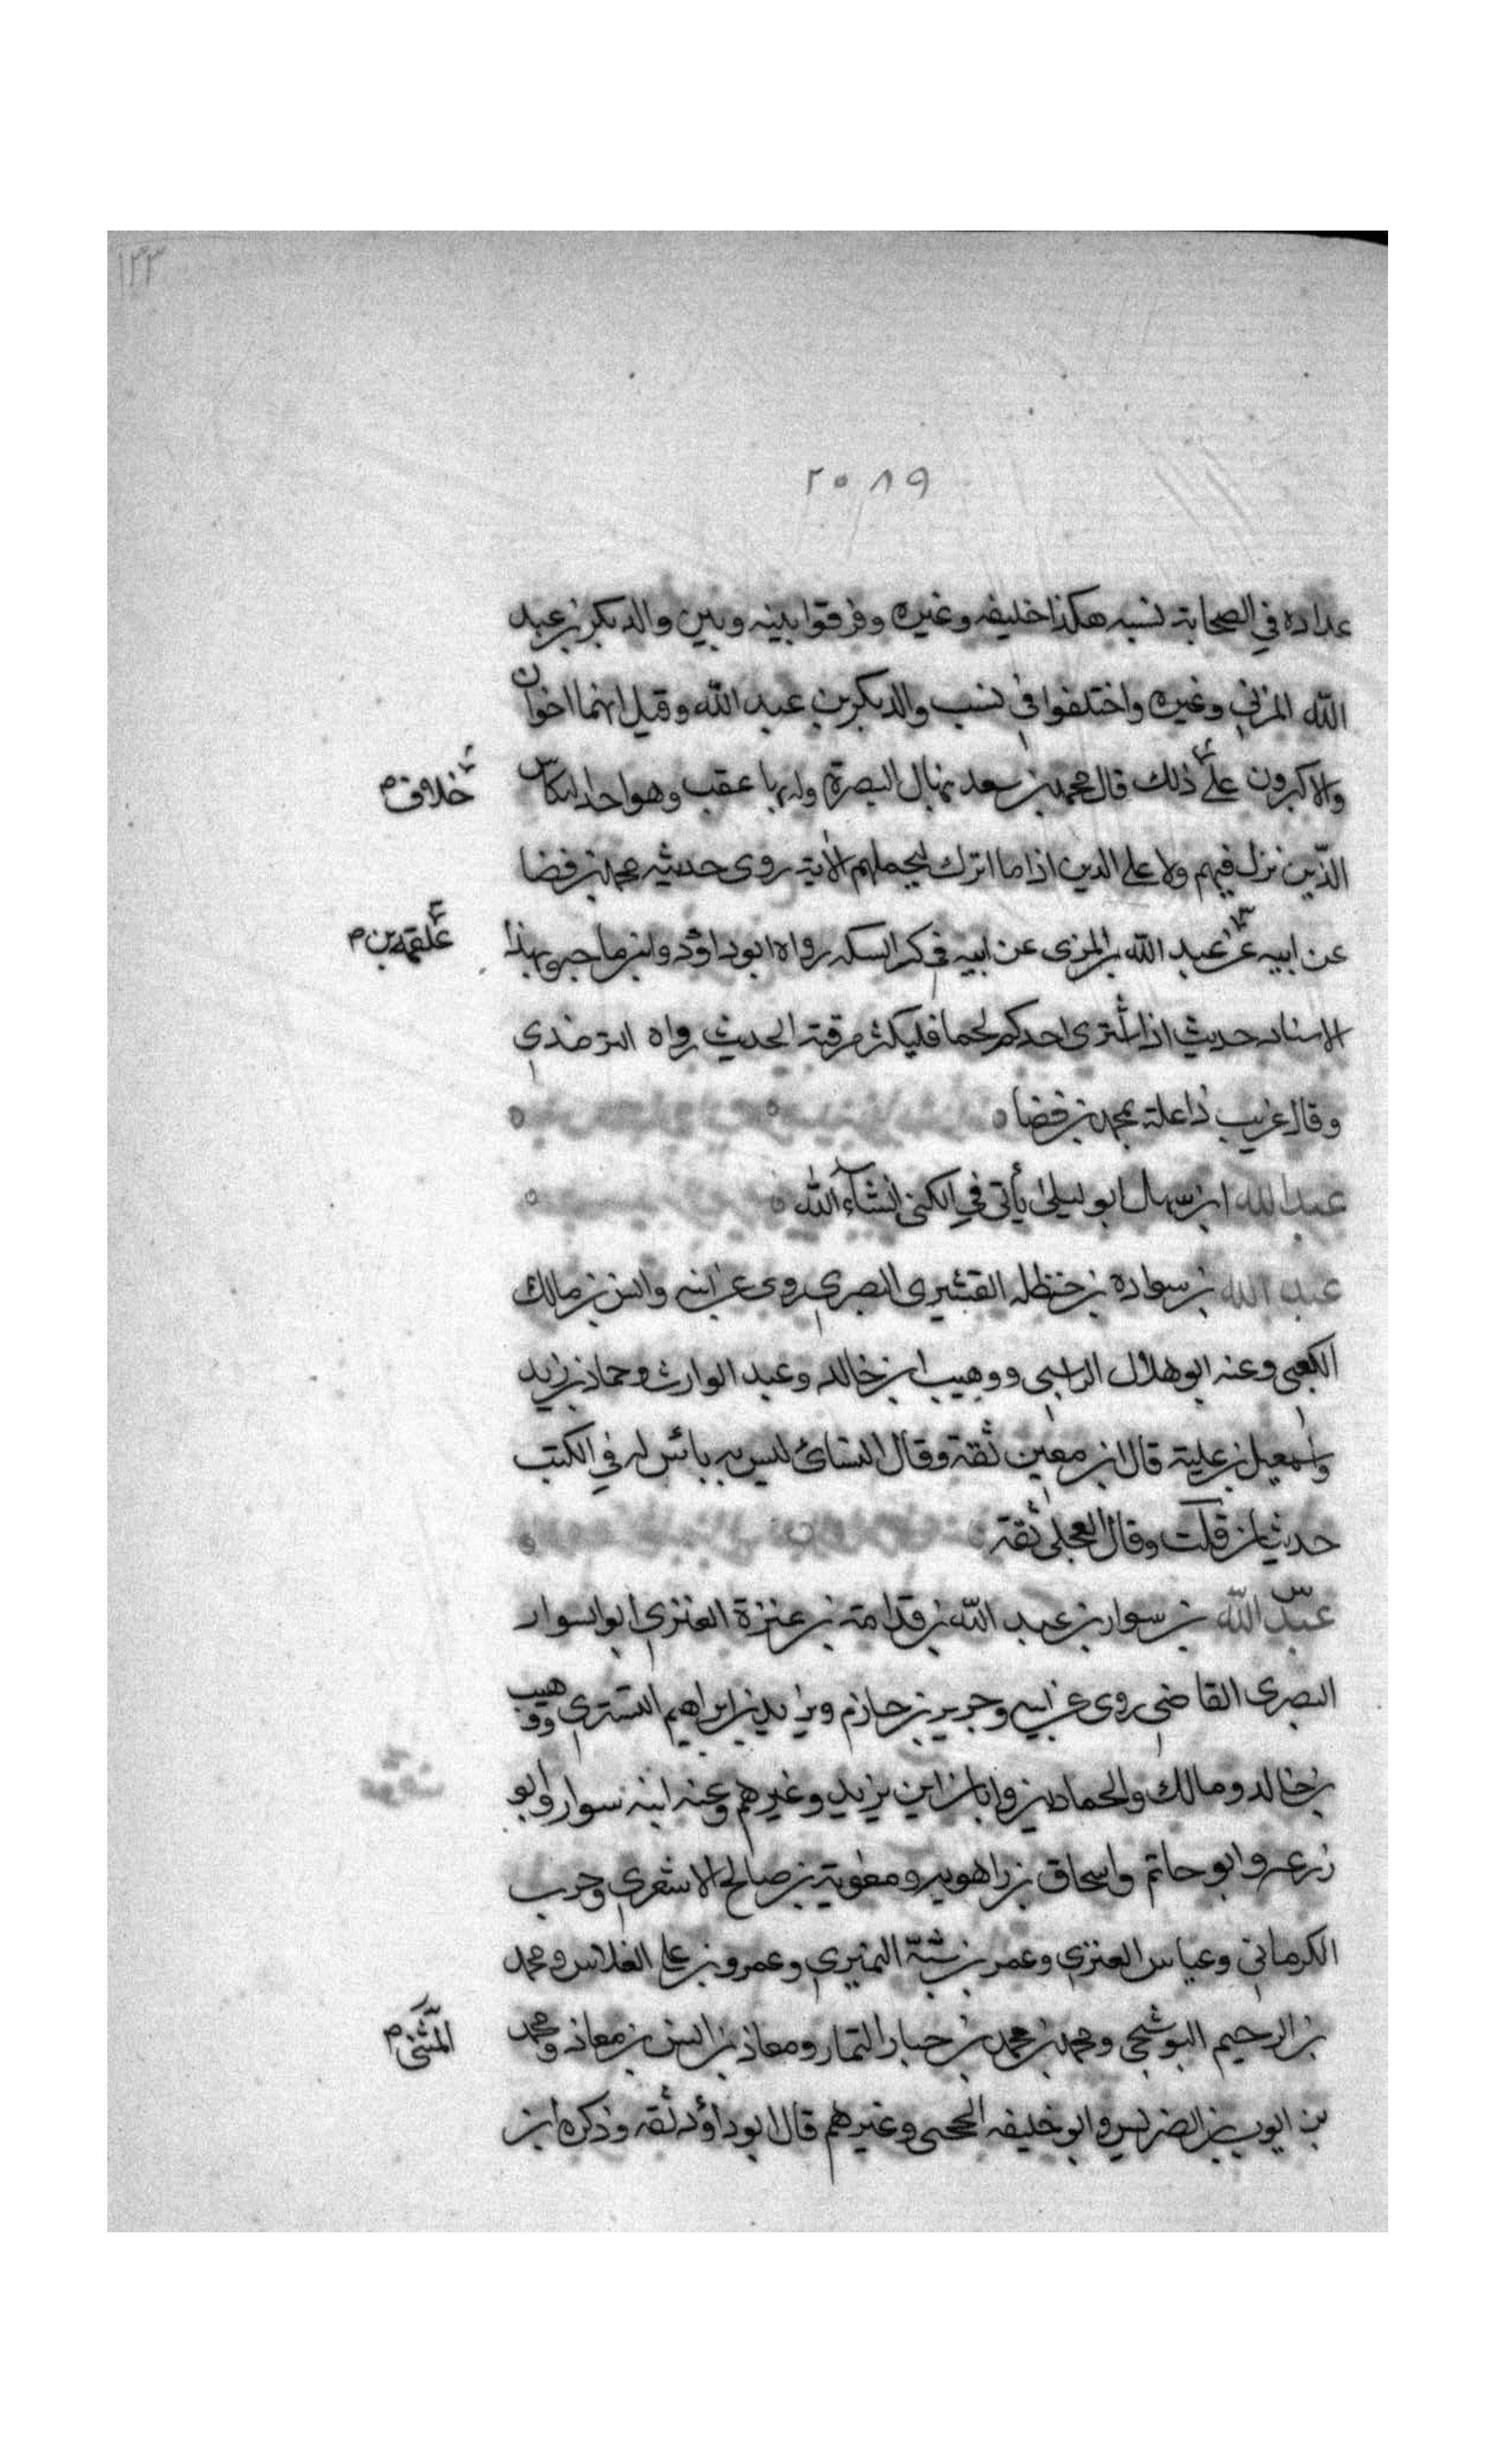 ١٢٣
٢٠٨٩
عداده في الصحابة نسبه هكذا خليفه وغيره وفرقوا بينه وبين والد بكر بن عبد
الله المزني وغيره واختلفوا في نسب والد بكر بن عبد الله وقيل انهما اخوان
والاكثرون على ذلك قال محمد بن سعد نزل البصرة وله بها عقب وهو احد البكائين
خلاف م
الذين نزل فيهم ولا على الذين اذا ما اتوك لتحملهم الاية روى حديثه محمد بن فضا
عن ابيه عن عبد الله المزنى عن ابيه في كسر السكه رواه ابو داؤد وابن ماجه وبهذا
علقمه بن م
الاسناد حديث اذا اشترى احدكم لحما فليكثر مرقته الحديث رواه الترمذي
وقال غريب ذا علته محمد بن فضا
عبد الله ابن سهل ابو ليلى يأتى في الكنى انشآء الله
عبد الله بن سواده بن حنظله القشيري البصري روى عن ابيه وانس بن مالك
الكعبى وعنه ابو هلال الراسبى ووهيب ابن خالد وعبد الوارث وحماد بن زيد
واسمعيل بن علية قال ابن معين ثقة وقال النسائ ليس به بائس له في الكتب
حديثان قلت وقال العجلى ثقة
عبد الله بن سوار بن عبد الله بن قدامة بن عنزة العنزي ابو السوار
البصرى القاضى روى عن ابيه وجرير بن حازم ويزيد بن ابراهيم التستري ووهيب
بن خالد ومالك والحمادين وابان ابن يزيد وغيرهم وعنه ابنه سوار وابو
زرعه وابو حاتم واسحاق بن راهويه ومعوية بن صالح الاشعري وحرب
الكرمانى وعباس العنزي وعمر بن شبة النميري وعمرو بن على الفلاس ومحمد
بن ابرهيم البوشنجى ومحمد بن محمد بن حبار التمار ومعاذ بن المثنى بن معاذ ومحمد
المثنى م
بن ايوب بن الضريس وابو خليفه الجمحى وغيرهم قال ابو داؤد ثقه وذكره ابن